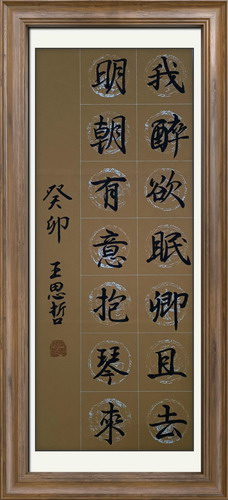 我醉欲眠卿且去
明朝有意抱琴來
癸卯 王思哲